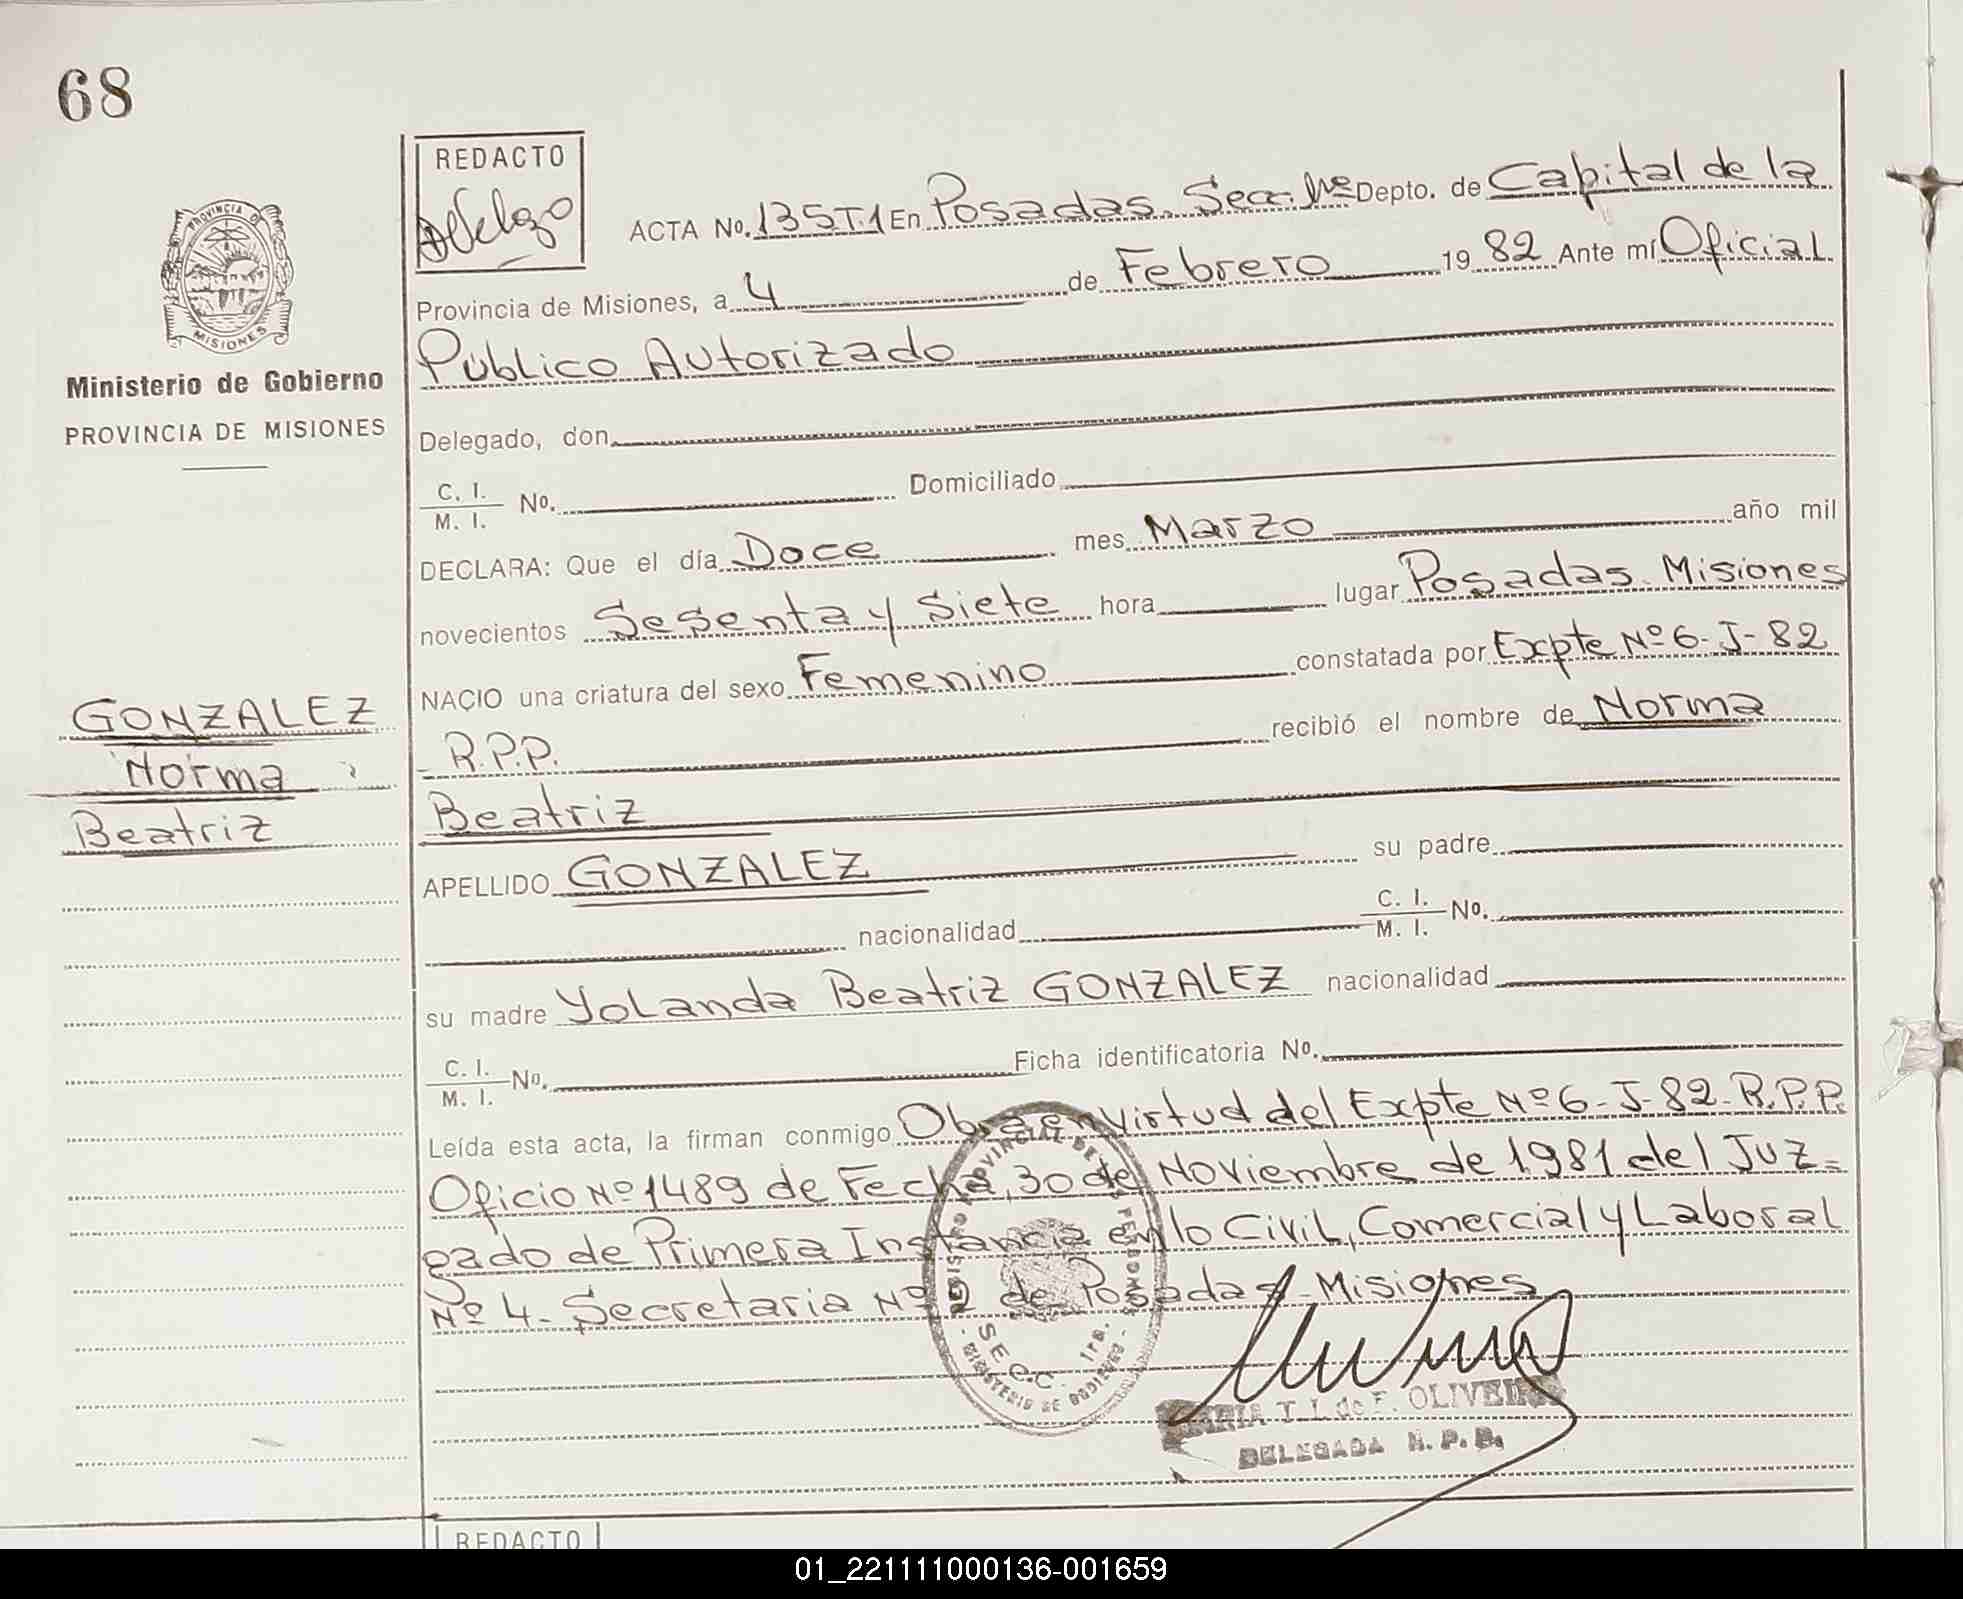 68
REDACTO
PROVINCIA D
MISIONES
Ministerio de Gobierno
PROVINCIA DE MISIONES
ACTA No. 135 T.1 En Posadas. Secc. 1ra Depto. de Capital de la
Provincia de Misiones, a 4 de Febrero 19 82 Ante mí Oficial
Público Autorizado
Delegado, don
C. I. / M. I. No. Domiciliado
DECLARA: Que el día Doce mes Marzo año mil
novecientos Sesenta y Siete hora lugar Posadas. Misiones
NACIO una criatura del sexo Femenino constatada por Expte Nº 6-J-82
R.P.P. recibió el nombre de Norma
Beatriz
APELLIDO GONZALEZ su padre
nacionalidad C. I. / M. I. No.
su madre Yolanda Beatriz GONZALEZ nacionalidad
C. I. / M. I. No. Ficha identificatoria No.
Leída esta acta, la firman conmigo Obra en virtud del Expte Nº 6-J-82-R.P.P.
Oficio Nº 1489 de Fecha, 30 de Noviembre de 1981 del Juz=
gado de Primera Instancia en lo Civil, Comercial y Laboral
Nº 4- Secretaria Nº de Posadas- Misiones
GONZALEZ
Norma
Beatriz
SECC. 1ra.
MINISTERIO DE GOBIERNO
T. I. de F. OLIVEIRA
DELEGADA R. P. P.
REDACTO
01_221111000136-001659